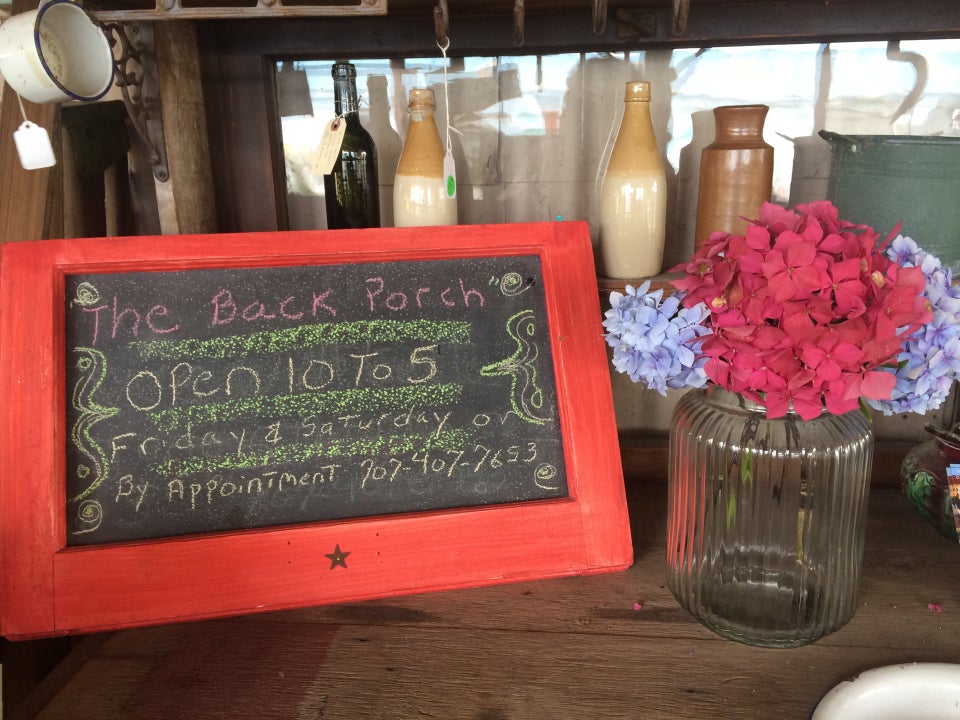 The Back Porch
Open 10 To 5
Friday & Saturday or
By Appointment 707-407-7653